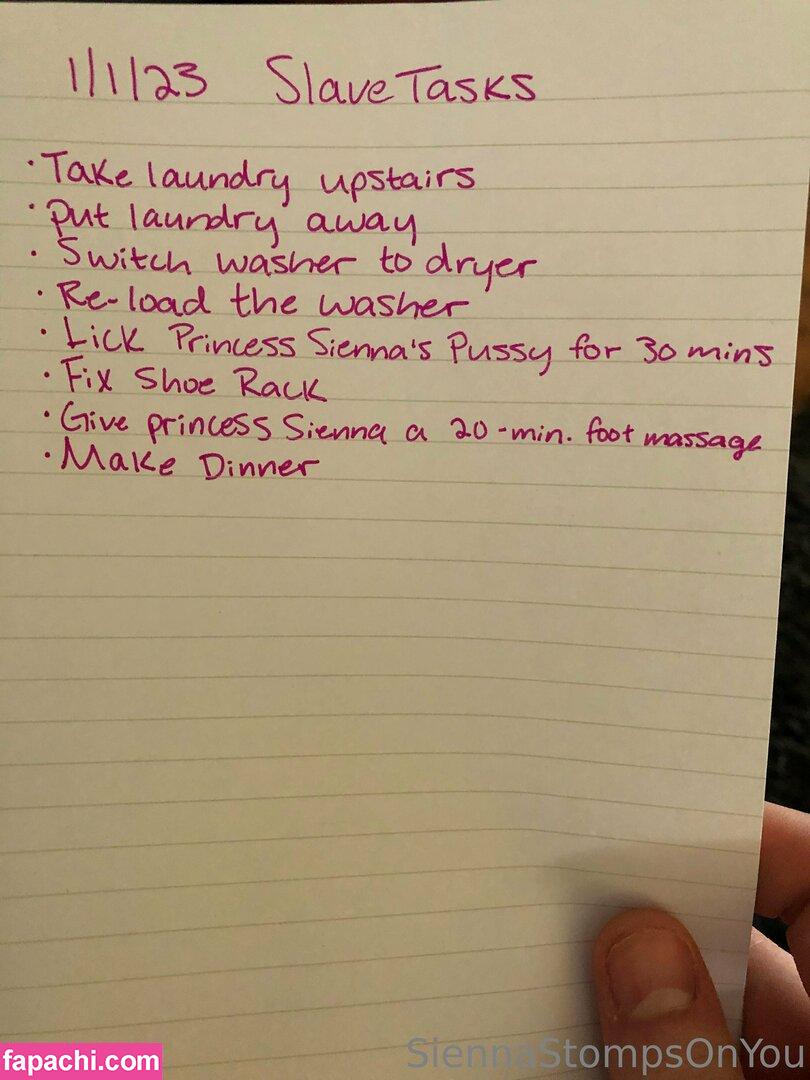 1/1/23 Slave Tasks
· Take laundry upstairs
· Put laundry away
· Switch washer to dryer
· Re-load the washer
· Lick Princess Sienna's Pussy for 30 mins
· Fix Shoe Rack
· Give princess Sienna a 20-min. foot massage
· Make Dinner
fapachi.com
SiennaStompsOnYou